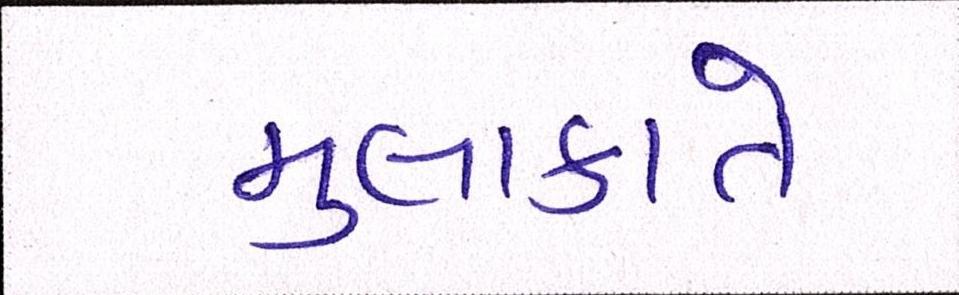 મુલાકાતે